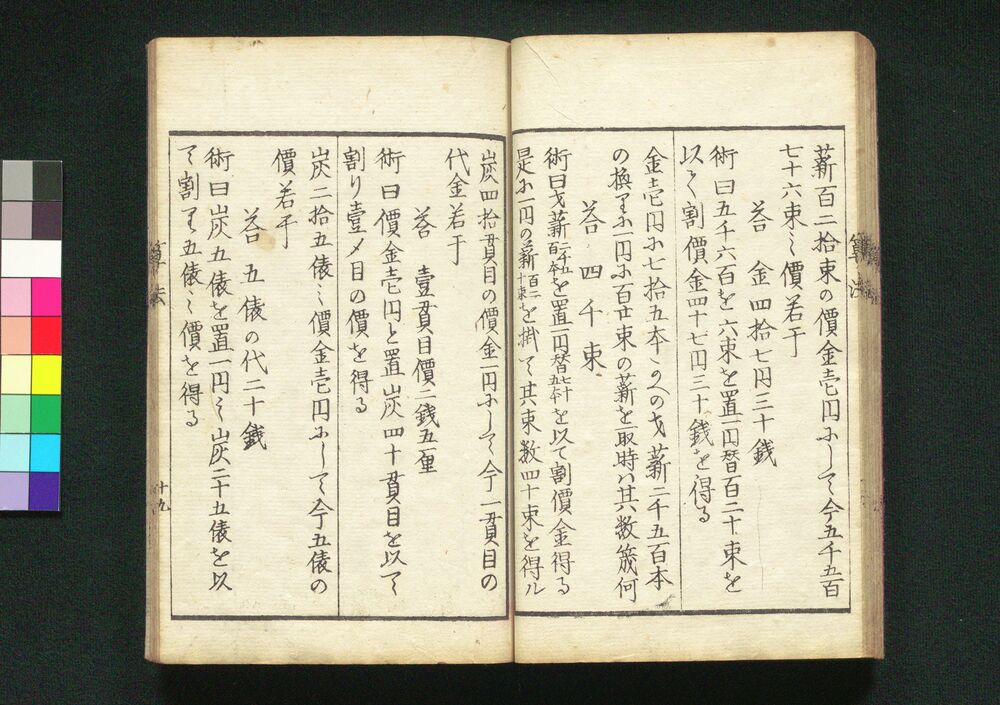 薪百二拾束の價金壱円ニして今五千五百
七十六束之價若干
荅　金四拾七円三十銭
術曰五千六百を六束を置一円替百二十束を
以て割價金四十七円三十銭を得る
金壱円ニ七拾五本
薪二千五百本
の換りニ一円ニ百廿束の薪を取時ハ其数幾何
荅　四千束
術曰 薪二千五百本を置一円替七十五本を以て割價金得る
是ニ一円の薪百二十束を掛て其束数四十束を得ル
炭四拾貫目の價金一円ニして今一貫目の
代金若干
荅　壹貫目價二銭五厘
術曰價金壱円と置炭四十貫目を以て
割り壹〆目の價を得る
炭二拾五俵之價金壱円ニして今五俵の
價若干
荅　五俵の代二十銭
術曰炭五俵を置一円之炭二十五俵を以
て割り五俵之價を得る
算法
十九
算法